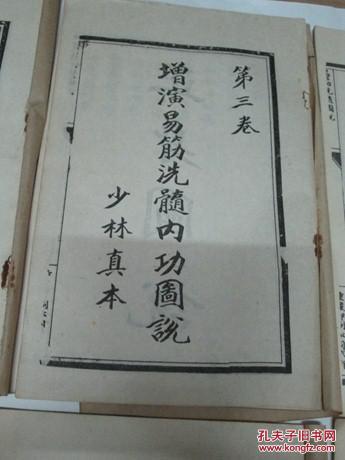 第三卷
增演易筋洗髓內功圖說
少林真本
孔夫子旧书网